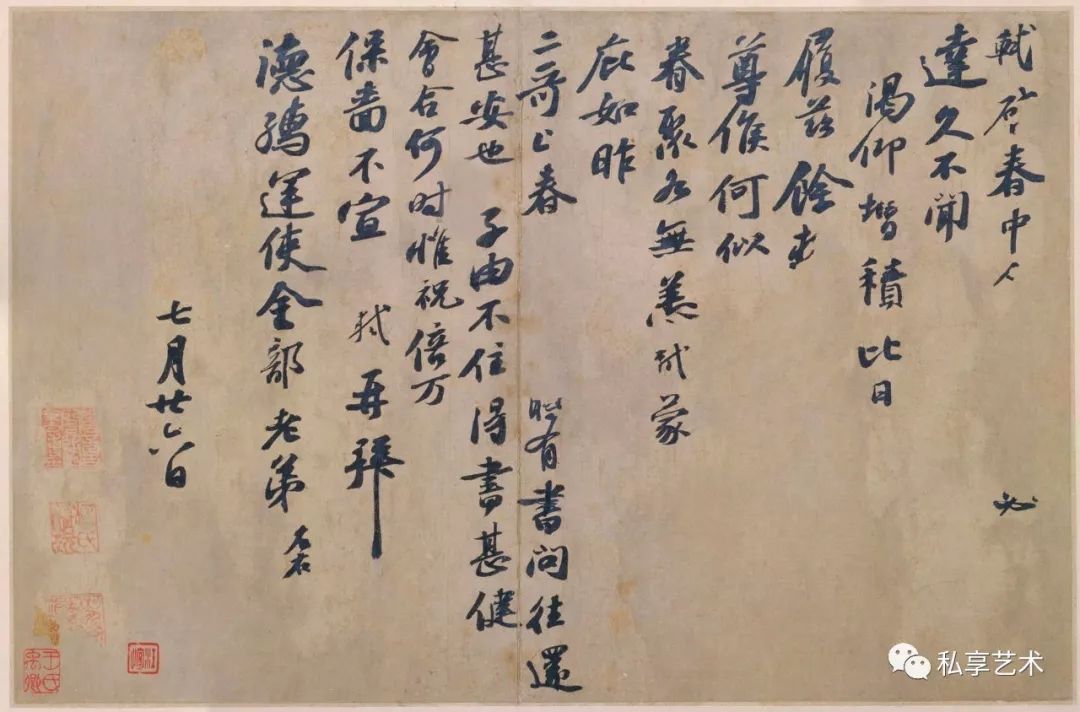 軾啓春中人 必
達久不聞
渴仰增積比日
履茲餘
尊候何似
眷聚各無恙軾蒙
庇如昨
二哥上春 時有書問往還
甚安也 子由不住得書甚健
會合何时惟祝倍万
保嗇不宣 軾再拜
德孺運使金部老弟
七月廿六日
私享艺术